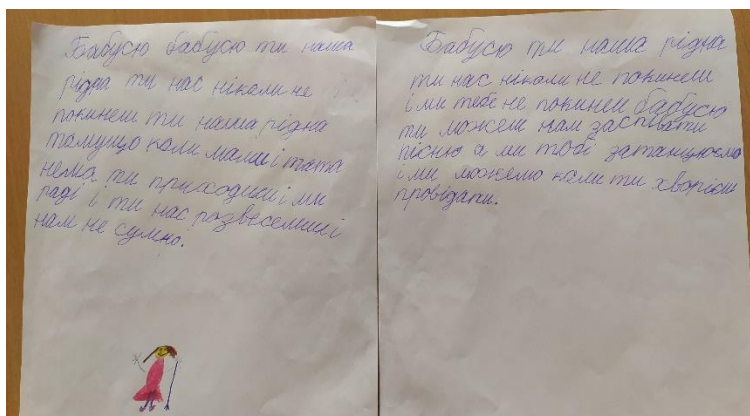 Бабусю бабусю ти наша
рідна ти нас ніколи не
покинеш ти наша рідна
тамущо коли мами і тата
нема ти приходиш і ми
раді і ти нас розвеселиш і
нам не сумно.
Бабусю ти наша рідна
ти нас ніколи не покинеш
і ми тебе не покинем бабусю
ти можеш нам заспівати
пісню а ми тобі затанцюємо
і ми можемо коли ти хворієш
провідати.